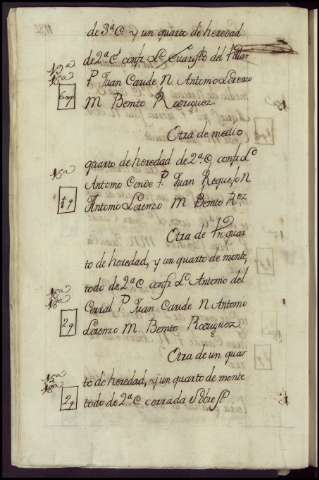 de 3ª C y un quarto de heredad
de 2ª C confª Lte Evaristo del Villar
P. Juan Caride N. Antonio Lorenzo
M. Benito Rodriguez
Otra de medio
quarto de heredad de 2ª C confª Lte
Antonio Conde P. Juan Requejo N
Antonio Lorenzo M Benito Rez
Otra de un quar
to de heredad, y un quarto de monte
todo de 2ª C confª Lte Antonio del
P. Juan Caride N Antonio
Lorenzo M. Benito Rodriguez
Otra de un quar
to de heredad, y un quarto de monte
todo de 2ª C cerrada sobre sí P.